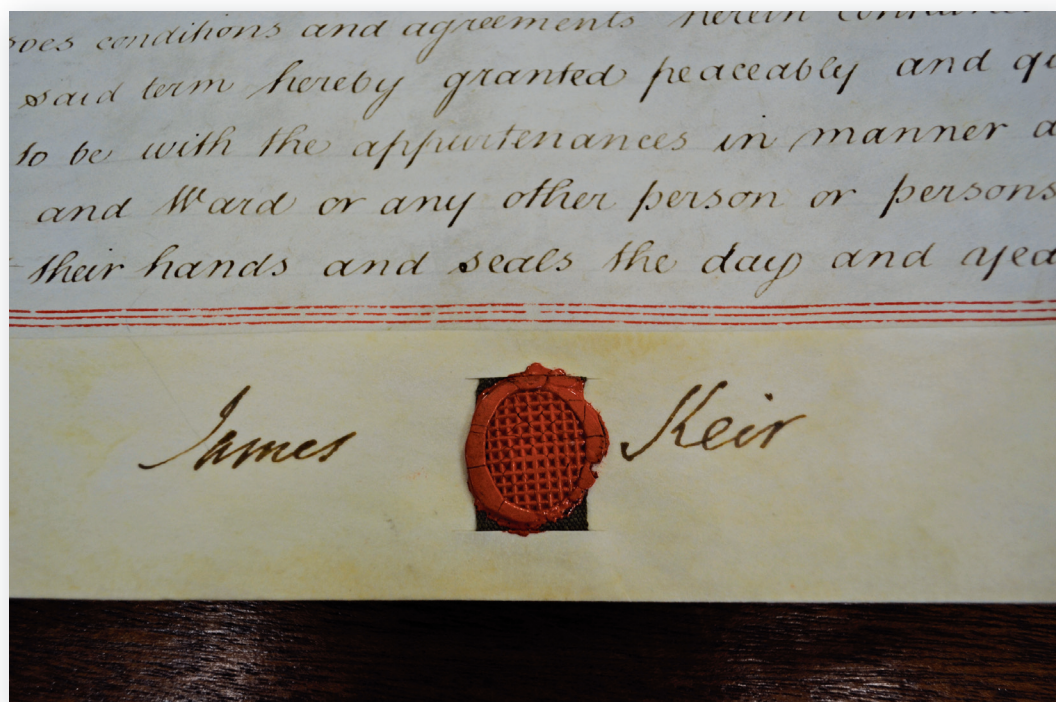 conditions and agreements herein
said term hereby granted peaceably and
to be with the appurtenances in manner
and Ward or any other person or persons
their hands and seals the day and
James Keir